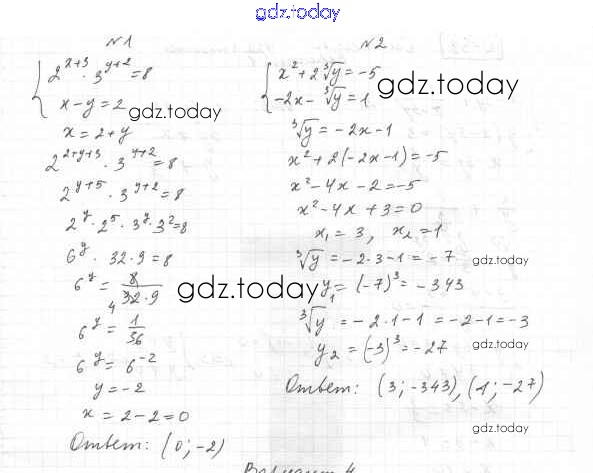 gdz.today
N1
{ 2^{x+3} · 3^{y+2} = 8
x - y = 2
gdz.today
x = 2 + y
2^{2+y+3} · 3^{y+2} = 8
2^{y+5} · 3^{y+2} = 8
2^y · 2^5 · 3^y · 3^2 = 8
6^y · 32 · 9 = 8
6^y = 8/(32·9)
4
gdz.today
6^y = 1/36
6^y = 6^{-2}
y = -2
x = 2 - 2 = 0
Ответ: (0; -2)
N2
{ x² + 2∛y = -5
-2x - ∛y = 1
gdz.today
∛y = -2x - 1
x² + 2(-2x - 1) = -5
x² - 4x - 2 = -5
x² - 4x + 3 = 0
x₁ = 3, x₂ = 1
∛y = -2·3 - 1 = -7
gdz.today
y₁ = (-7)³ = -343
∛y = -2·1 - 1 = -2 - 1 = -3
y₂ = (-3)³ = -27
gdz.today
Ответ: (3; -343), (1; -27)
gdz.today